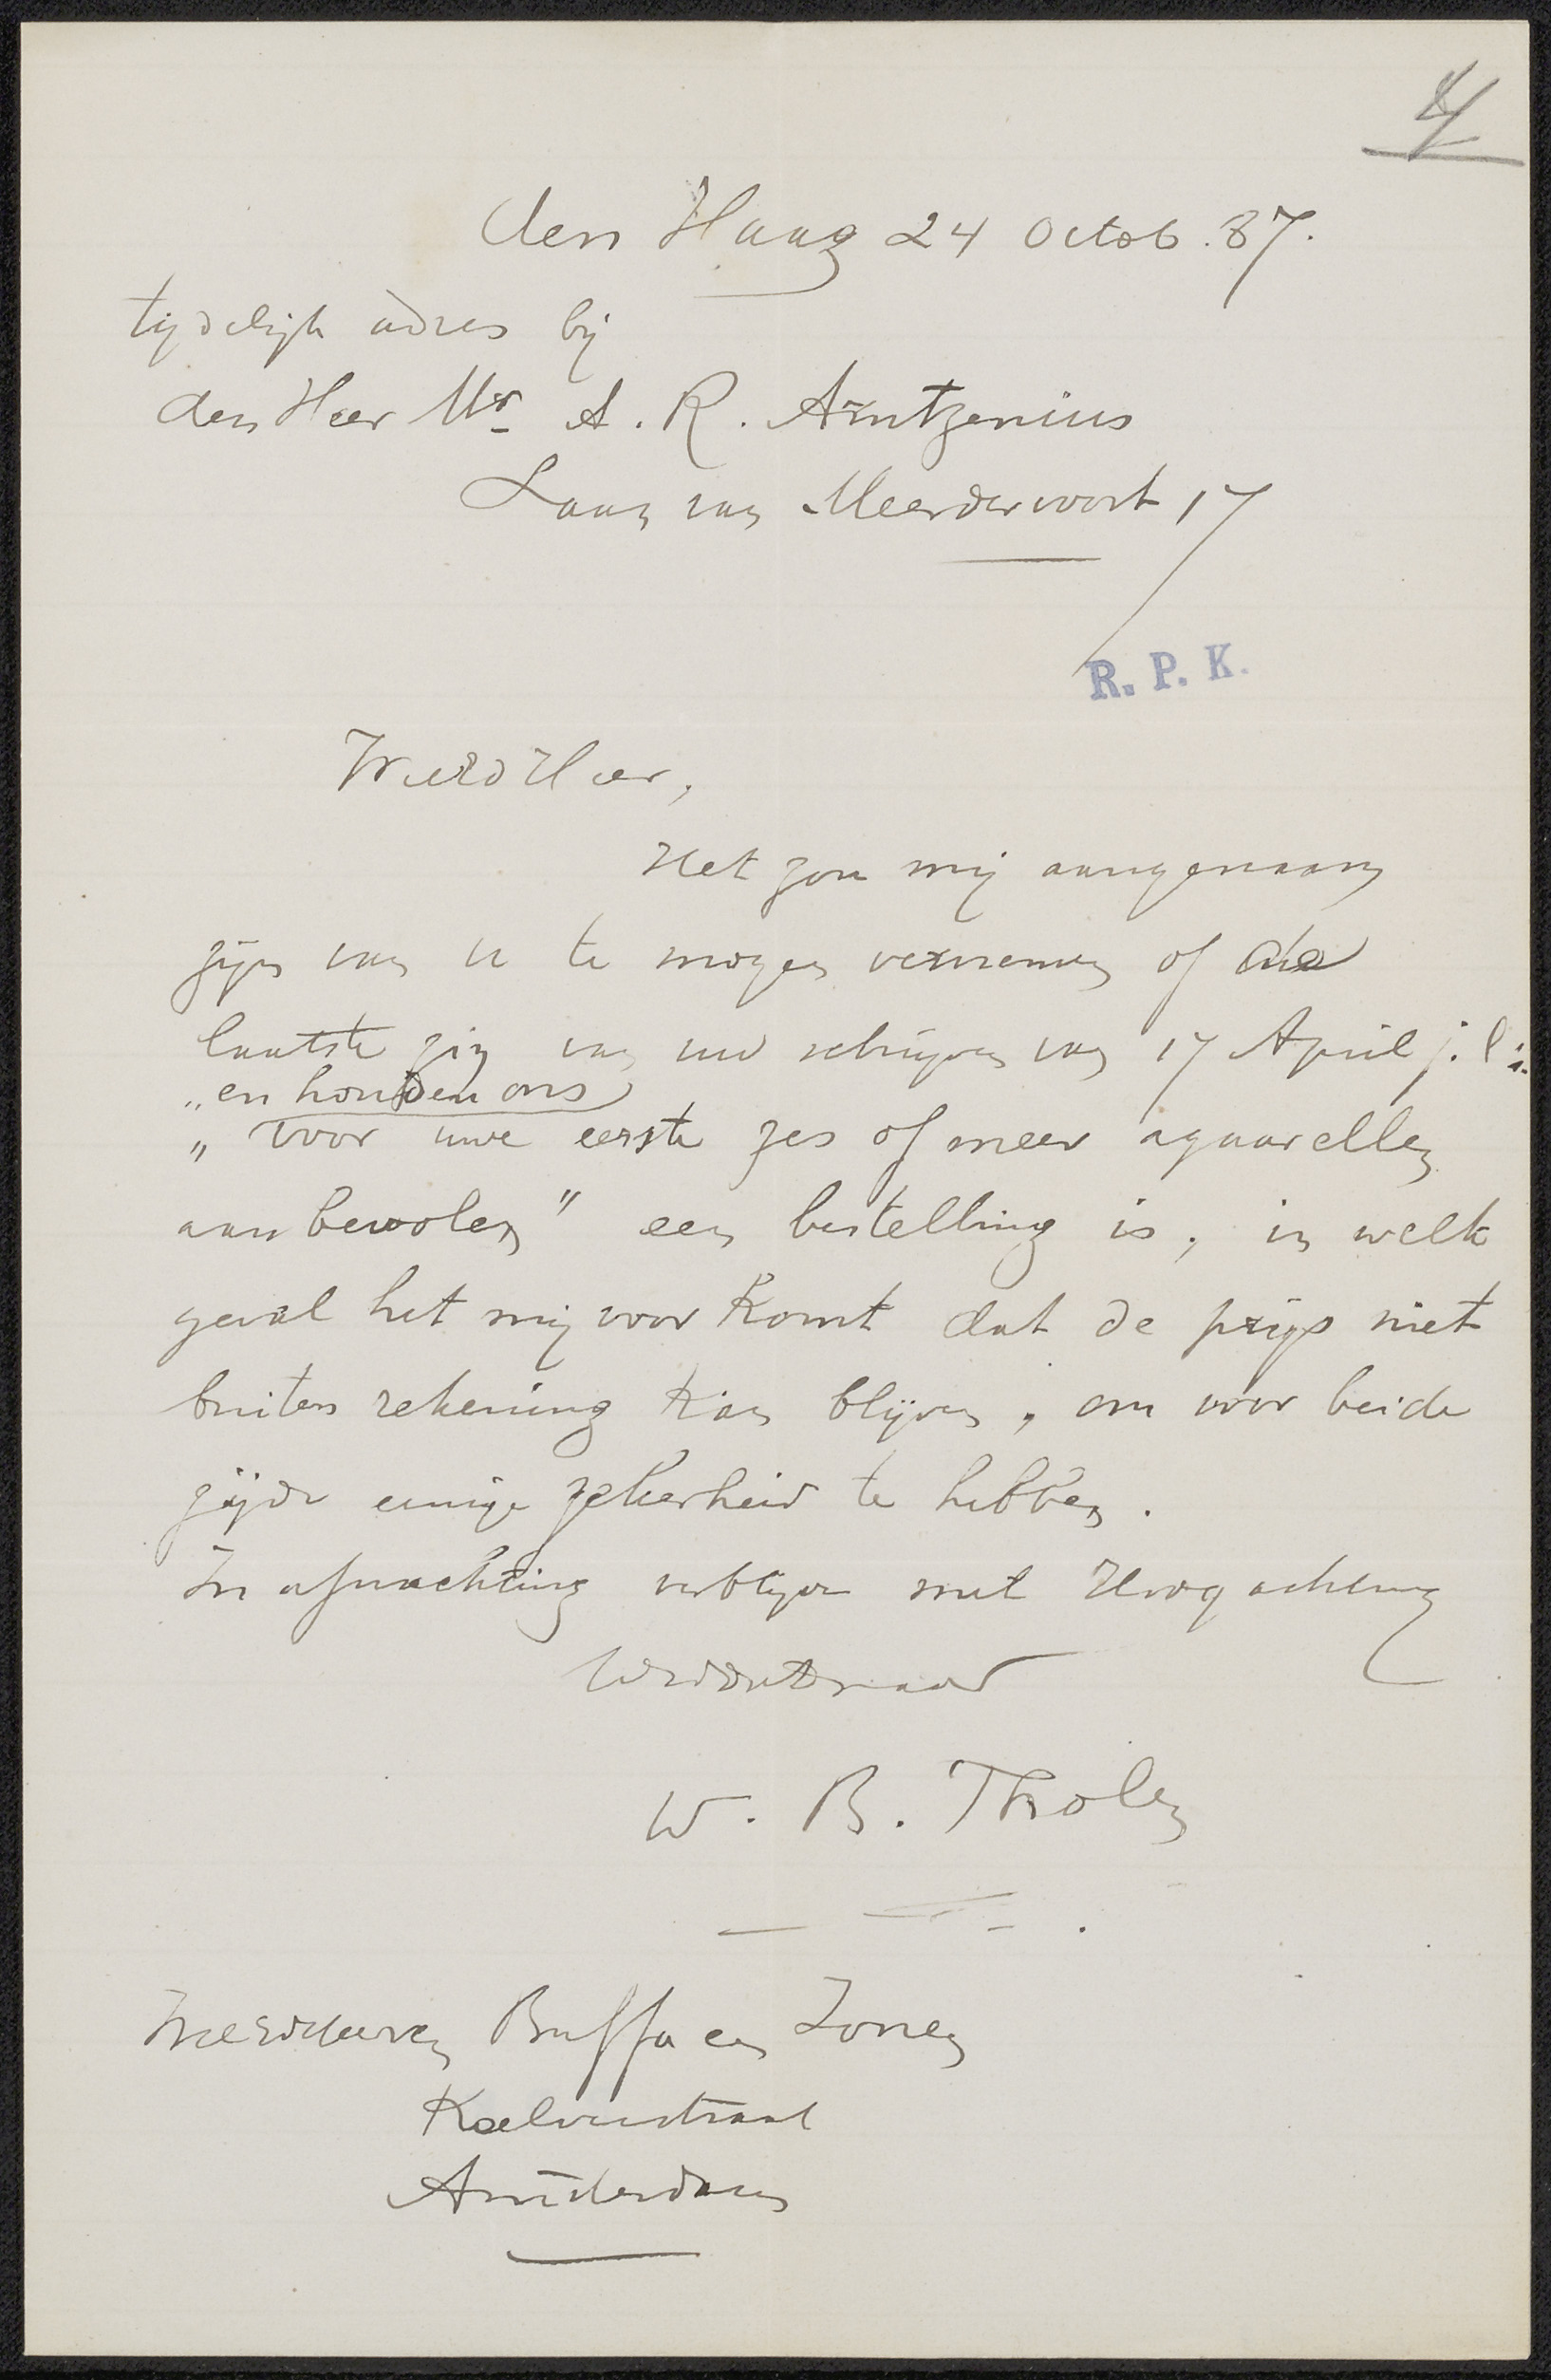 4
den Haag 24 Octob. 87.
tijdelijk adres bij
den Heer Mr A. R. Arntzenius
Laan van Meerdervoort 17
R. P. K.
Waarde Heer,
Het zou mij aangenaam
zijn van u te mogen vernemen of de
laatste zin van uw schrijven van 17 April j.l.:
„en houden ons
„voor uwe eerste zes of meer aquarellen
aanbevolen" een bestelling is, in welk
geval het mij voorkomt dat de prijs niet
buiten rekening kan blijven, om voor beide
zijde eenige zekerheid te hebben.
In afwachting verblijve met Hoogachting
W. B. Tholen
Buffa en Zonen
Kalverstraat
Amsterdam